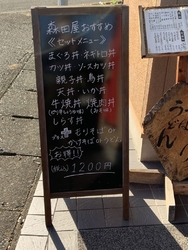 森田屋おすすめ
《セットメニュー》
まぐろ丼 ネギトロ丼
カツ丼 ソースカツ丼
親子丼 鳥丼
天丼・いか丼
牛焼丼 焼肉丼
しらす丼
もりそば or
かけそば or うどん
お得!!
(税込) 1200円
うどん